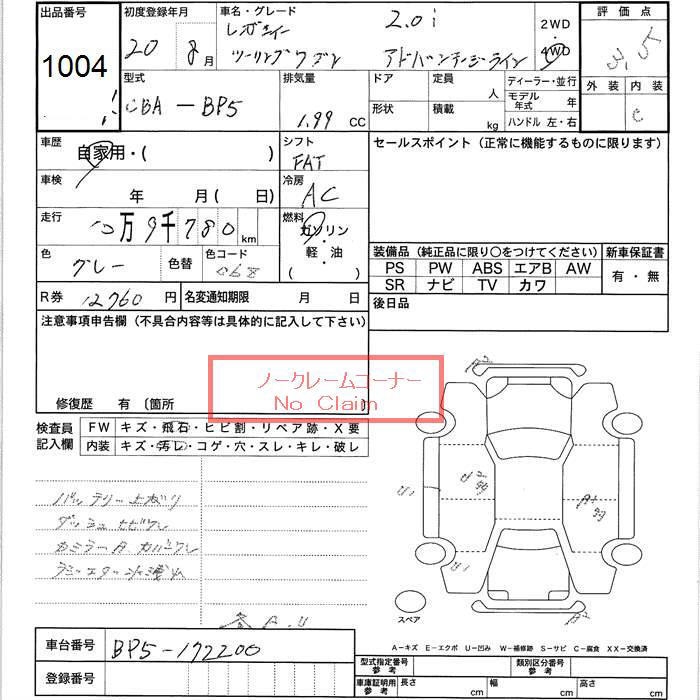 出品番号 初度登録年月 車名・グレード 評価点
1004 20 8月 レガシィ 2.0i 2WD 4WD 3.5
ツーリングワゴン アドバンテージライン
型式 排気量 ドア 定員 人 ディーラー・並行 外装 内装
CBA-BP5 1.99 CC 形状 積載 kg モデル年式 年 C
ハンドル 左・右
車歴 自家用・( ) シフト FAT セールスポイント (正常に機能するものに限ります)
車検 年 月( 日) 冷房 AC
走行 万9千780km 燃料 ガソリン・軽油( )
色 グレー 色替 色コード 装備品 (純正品に限り〇をつけてください) 新車保証書
PS PW ABS エアB AW 有・無
SR ナビ TV カワ
R券 12760円 名変通知期限 月 日 後日品
注意事項申告欄 (不具合内容等は具体的に記入して下さい)
ノークレームコーナー
No Claim
修復歴 有 〔箇所 〕
検査員記入欄 FW キズ・飛石・ヒビ割・リペア跡・X要
内装 キズ・汚レ・コゲ・穴・スレ・キレ・破レ
バッテリー上がり
ダッシュヒビワレ
A2
U1
A1
スペア
A-キズ E-エクボ U-凹み W-補修跡 S-サビ C-腐食 XX-交換済
車台番号 BP5-172200 型式指定番号 参考 類別区分番号 参考
登録番号 車庫証明用 参考 長さ cm 幅 cm 高さ cm